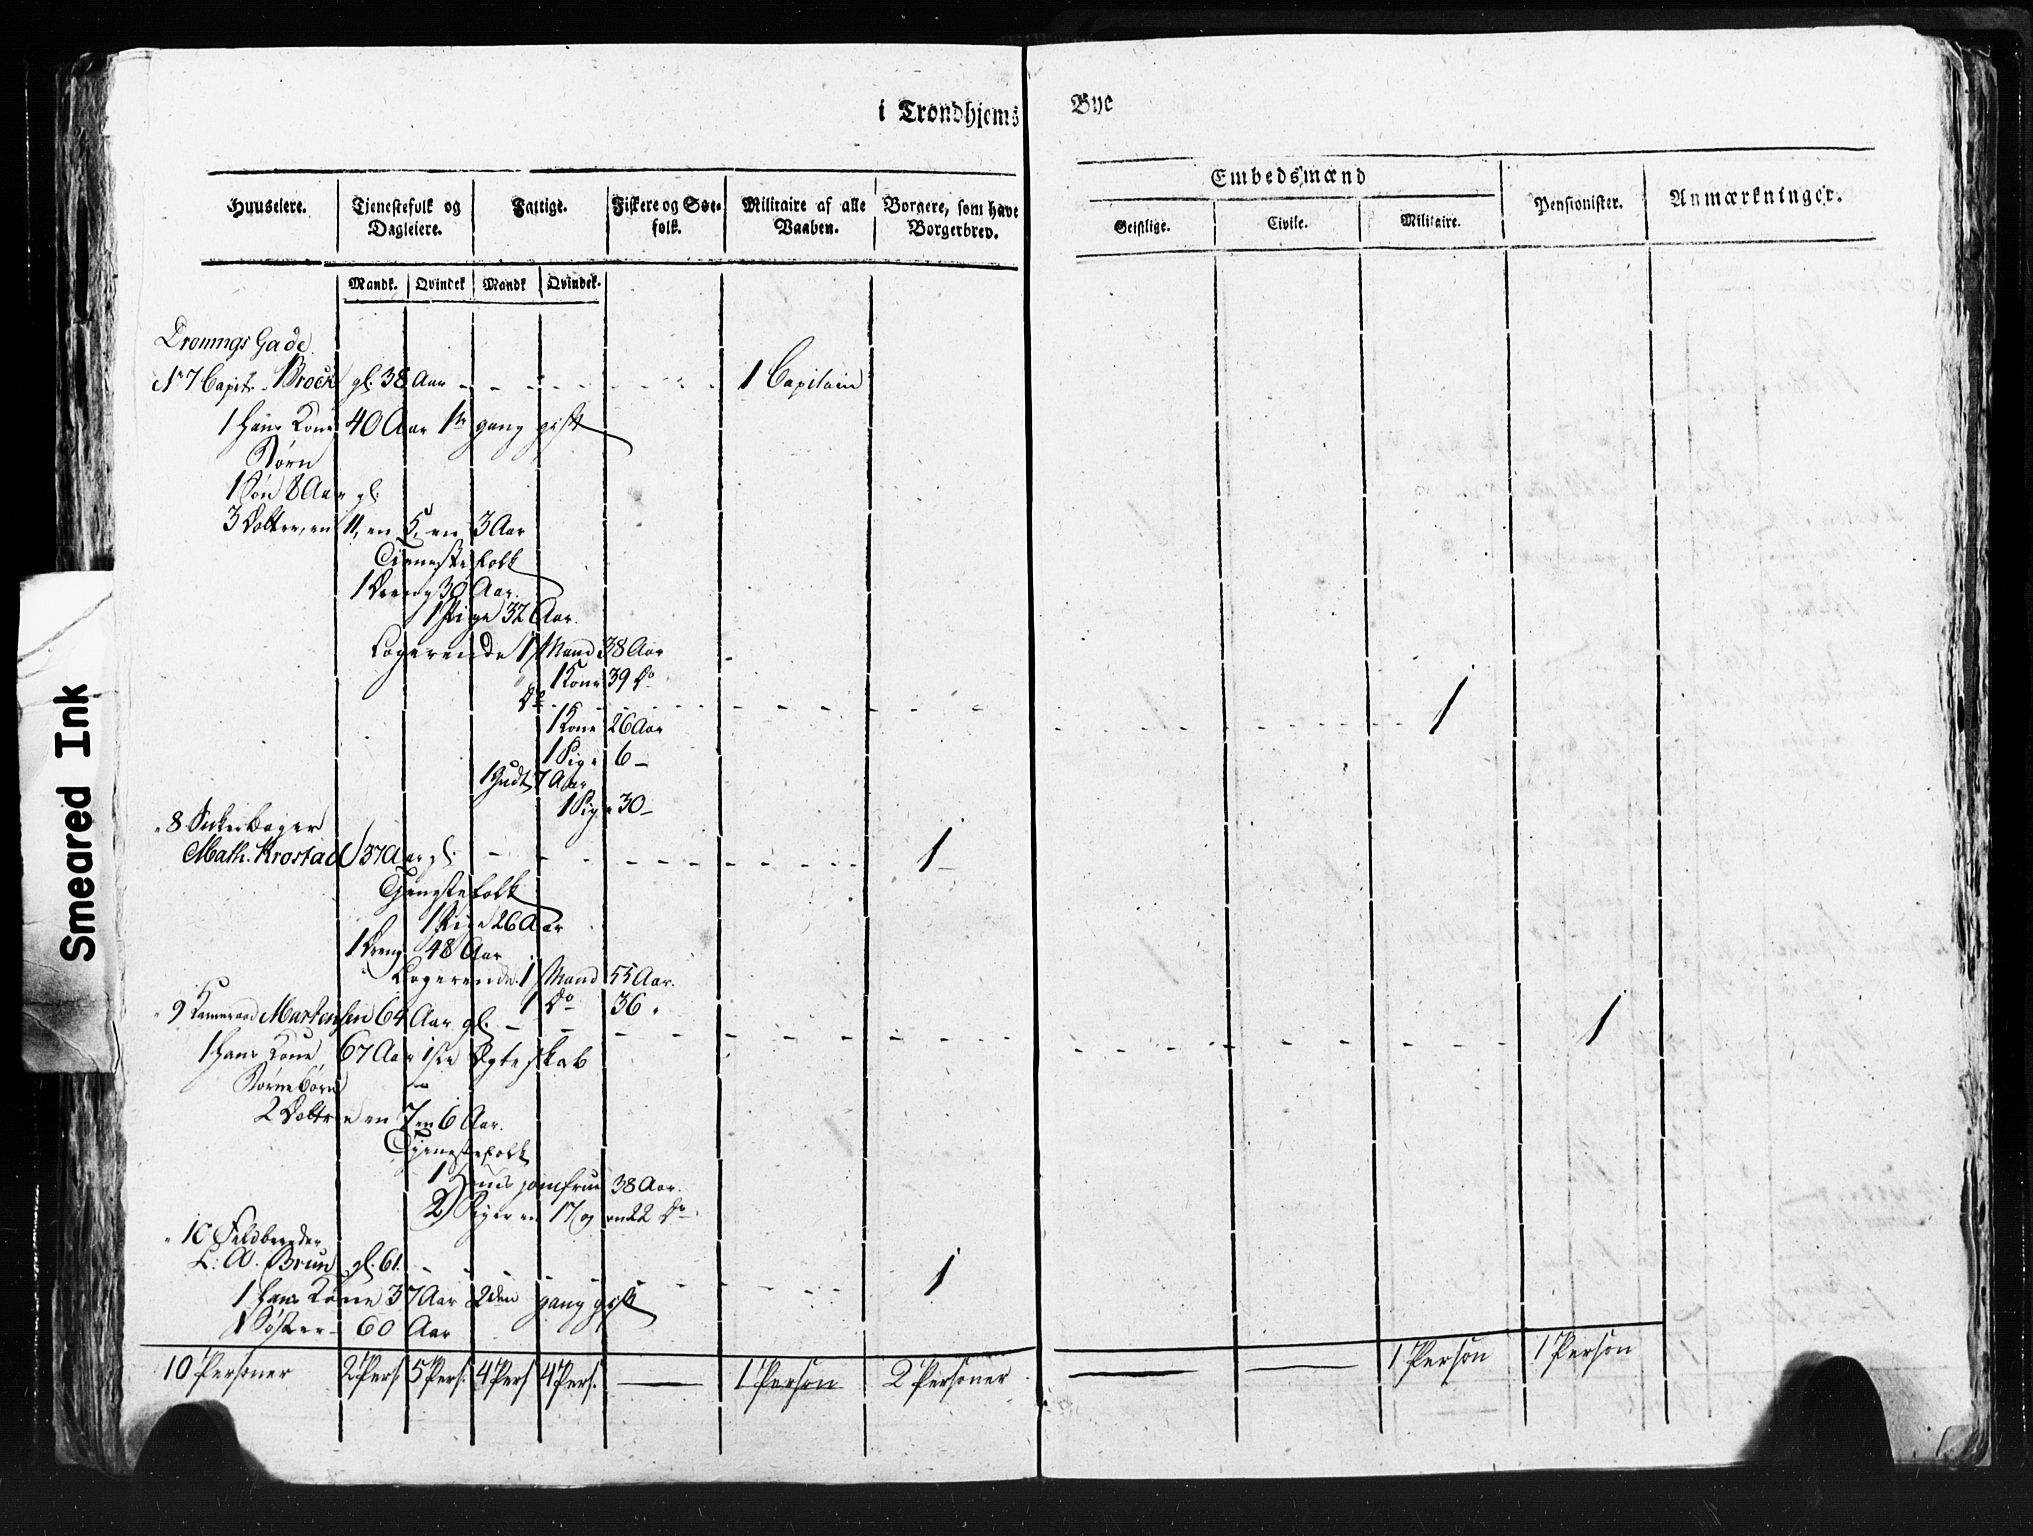 i Trondhjems Bye
Huuseiere.
Tjenestefolk og Dagleiere.
Fattige.
Fiskere og Søefolk.
Militaire af alle Vaaben.
Borgere, som have Borgerbrev.
Embedsmænd
Geistlige.
Civile.
Militaire.
Pensionister.
Anmærkninger.
Mandk. Qvindek Mandk Qvindek.
Dronnings Gade
No 7 Capit. Brock gl. 38 Aar 1 Capitain
1 Hans Kone 40 Aar 1te gang gift
Børn
1 Søn 8 Aar gl.
3 Døttre, en 11, en 5, en 3 Aar
Tienestefolk
1 Dreng 30 Aar.
1 Pige 32 Aar.
Logerende 1 Mand 38 Aar
1 Kone 39 Do
Do 1
1 Kone 26 Aar
1 Pige 6 —
1 Gudt 7 Aar
1 Pige 30 —
" 8 Sukerbager
Math. Krostad 37 Aar gl. 1
Tjenestefolk
1 Pige 26 Aar
1 Dreng 48 Aar
Logerende 1 Mand 55 Aar.
1 Do 36 "
" 9 Kameraad Martensen 64 Aar gl. 1
1 Hans Kone 67 Aar 1ste Ægteskab
Børnebørn
2 Døttre en 7 en 6 Aar.
Tjenestefolk
1 Huus jomfrue 38 Aar.
2 Piger en 17 og en 22 Do
" 10 Feldbereder
L: A. Brun gl. 61. 1
1 Hans Kone 37 Aar 2den gang gift
1 Søster 60 Aar
10 Personer 2 Pers. 5 Pers. 4 Pers 4 Pers. — 1 Person 2 Personer — — 1 Person 1 Person
Smeared Ink